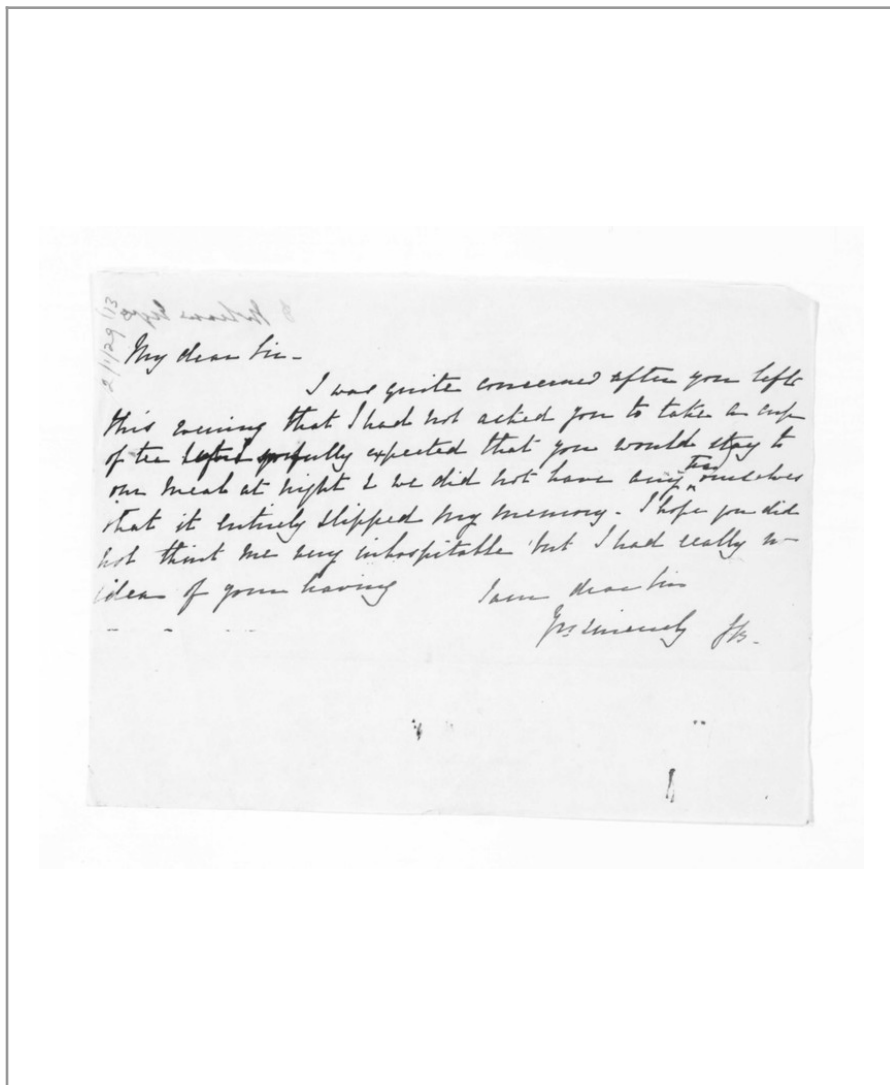 2/1/29/13
My dear Sir -
I was quite concerned after you left
this evening that I had not asked you to take a cup
of tea fully expected that you would stay to
our meal at night & we did not have any tea ourselves
that it entirely slipped my memory - I hope you did
not think me very inhospitable but I had really no
idea of your having I am dear Sir
Yrs sincerely